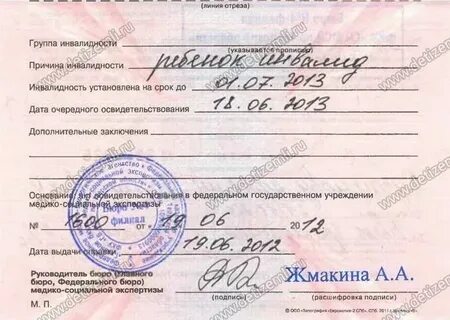 (линия отреза)
Группа инвалидности
(указывается прописью)
Причина инвалидности ребенок инвалид
Инвалидность установлена на срок до 01.07.2013
Дата очередного освидетельствования 18.06.2013
Дополнительные заключения
Основание: акт освидетельствования в федеральном государственном учреждении
медико-социальной экспертизы
№ 1600 от « 19 » 06 2012
филиал
Дата выдачи справки 19.06.2012
Руководитель бюро (главного
бюро, Федерального бюро)
медико-социальной экспертизы
Жмакина А.А.
(подпись) (расшифровка подписи)
М. П.
www.detizemli.ru